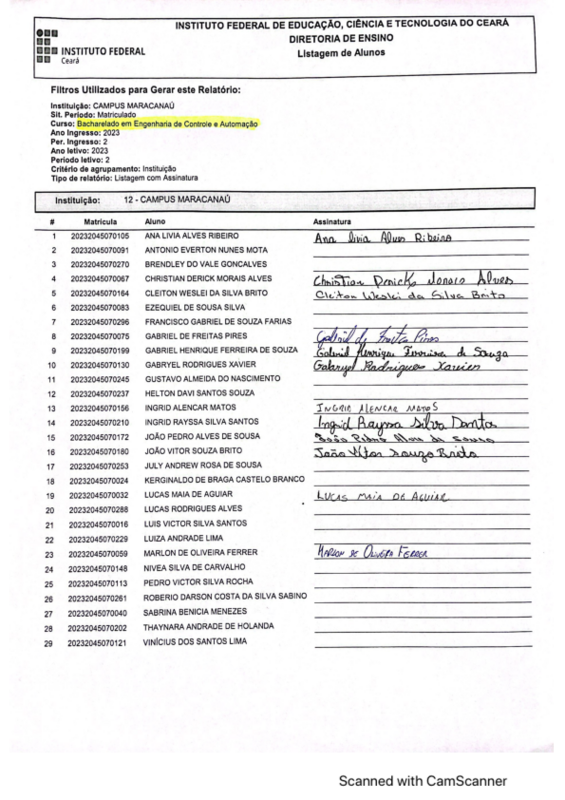 INSTITUTO FEDERAL DE EDUCAÇÃO, CIÊNCIA E TECNOLOGIA DO CEARÁ
DIRETORIA DE ENSINO
Listagem de Alunos
INSTITUTO FEDERAL
Ceará
Filtros Utilizados para Gerar este Relatório:
Instituição: CAMPUS MARACANAÚ
Sit. Período: Matriculado
Curso: Bacharelado em Engenharia de Controle e Automação
Ano Ingresso: 2023
Per. Ingresso: 2
Ano letivo: 2023
Período letivo: 2
Critério de agrupamento: Instituição
Tipo de relatório: Listagem com Assinatura
Instituição: 12 - CAMPUS MARACANAÚ
# Matrícula Aluno Assinatura
1 20232045070105 ANA LIVIA ALVES RIBEIRO Ana livia Alves Ribeiro
2 20232045070091 ANTONIO EVERTON NUNES MOTA
3 20232045070270 BRENDLEY DO VALE GONCALVES
4 20232045070067 CHRISTIAN DERICK MORAIS ALVES Christian Derick Morais Alves
5 20232045070164 CLEITON WESLEI DA SILVA BRITO Cleiton Weslei da Silva Brito
6 20232045070083 EZEQUIEL DE SOUSA SILVA
7 20232045070296 FRANCISCO GABRIEL DE SOUZA FARIAS
8 20232045070075 GABRIEL DE FREITAS PIRES Gabriel de Freitas Pires
9 20232045070199 GABRIEL HENRIQUE FERREIRA DE SOUZA Gabriel Henrique Ferreira de Souza
10 20232045070130 GABRYEL RODRIGUES XAVIER Gabryel Rodrigues Xavier
11 20232045070245 GUSTAVO ALMEIDA DO NASCIMENTO
12 20232045070237 HELTON DAVI SANTOS SOUZA
13 20232045070156 INGRID ALENCAR MATOS INGRID ALENCAR MATOS
14 20232045070210 INGRID RAYSSA SILVA SANTOS Ingrid Rayssa Silva Santos
15 20232045070172 JOÃO PEDRO ALVES DE SOUSA João Pedro Alves de Sousa
16 20232045070180 JOÃO VITOR SOUZA BRITO João Vitor Souza Brito
17 20232045070253 JULY ANDREW ROSA DE SOUSA
18 20232045070024 KERGINALDO DE BRAGA CASTELO BRANCO
19 20232045070032 LUCAS MAIA DE AGUIAR LUCAS MAIA DE AGUIAR
20 20232045070288 LUCAS RODRIGUES ALVES
21 20232045070016 LUIS VICTOR SILVA SANTOS
22 20232045070229 LUIZA ANDRADE LIMA
23 20232045070059 MARLON DE OLIVEIRA FERRER MARLON DE OLIVEIRA FERRER
24 20232045070148 NIVEA SILVA DE CARVALHO
25 20232045070113 PEDRO VICTOR SILVA ROCHA
26 20232045070261 ROBERIO DARSON COSTA DA SILVA SABINO
27 20232045070040 SABRINA BENICIA MENEZES
28 20232045070202 THAYNARA ANDRADE DE HOLANDA
29 20232045070121 VINÍCIUS DOS SANTOS LIMA
Scanned with CamScanner